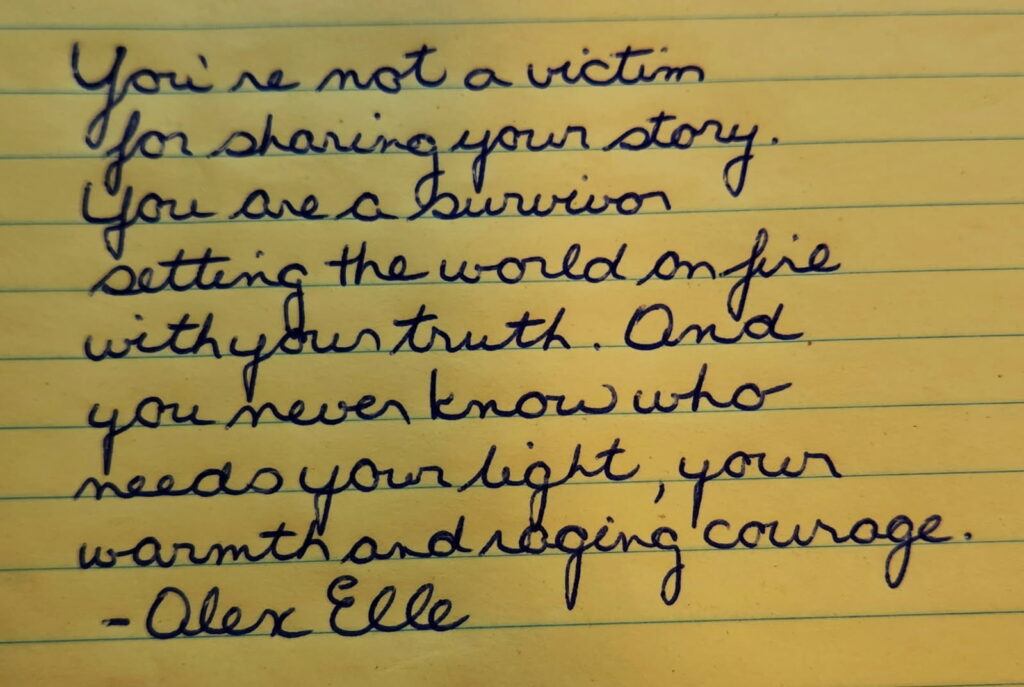 You're not a victim
for sharing your story.
You are a survivor
setting the world on fire
with your truth. And
you never know who
needs your light, your
warmth and raging courage.
- Alex Elle